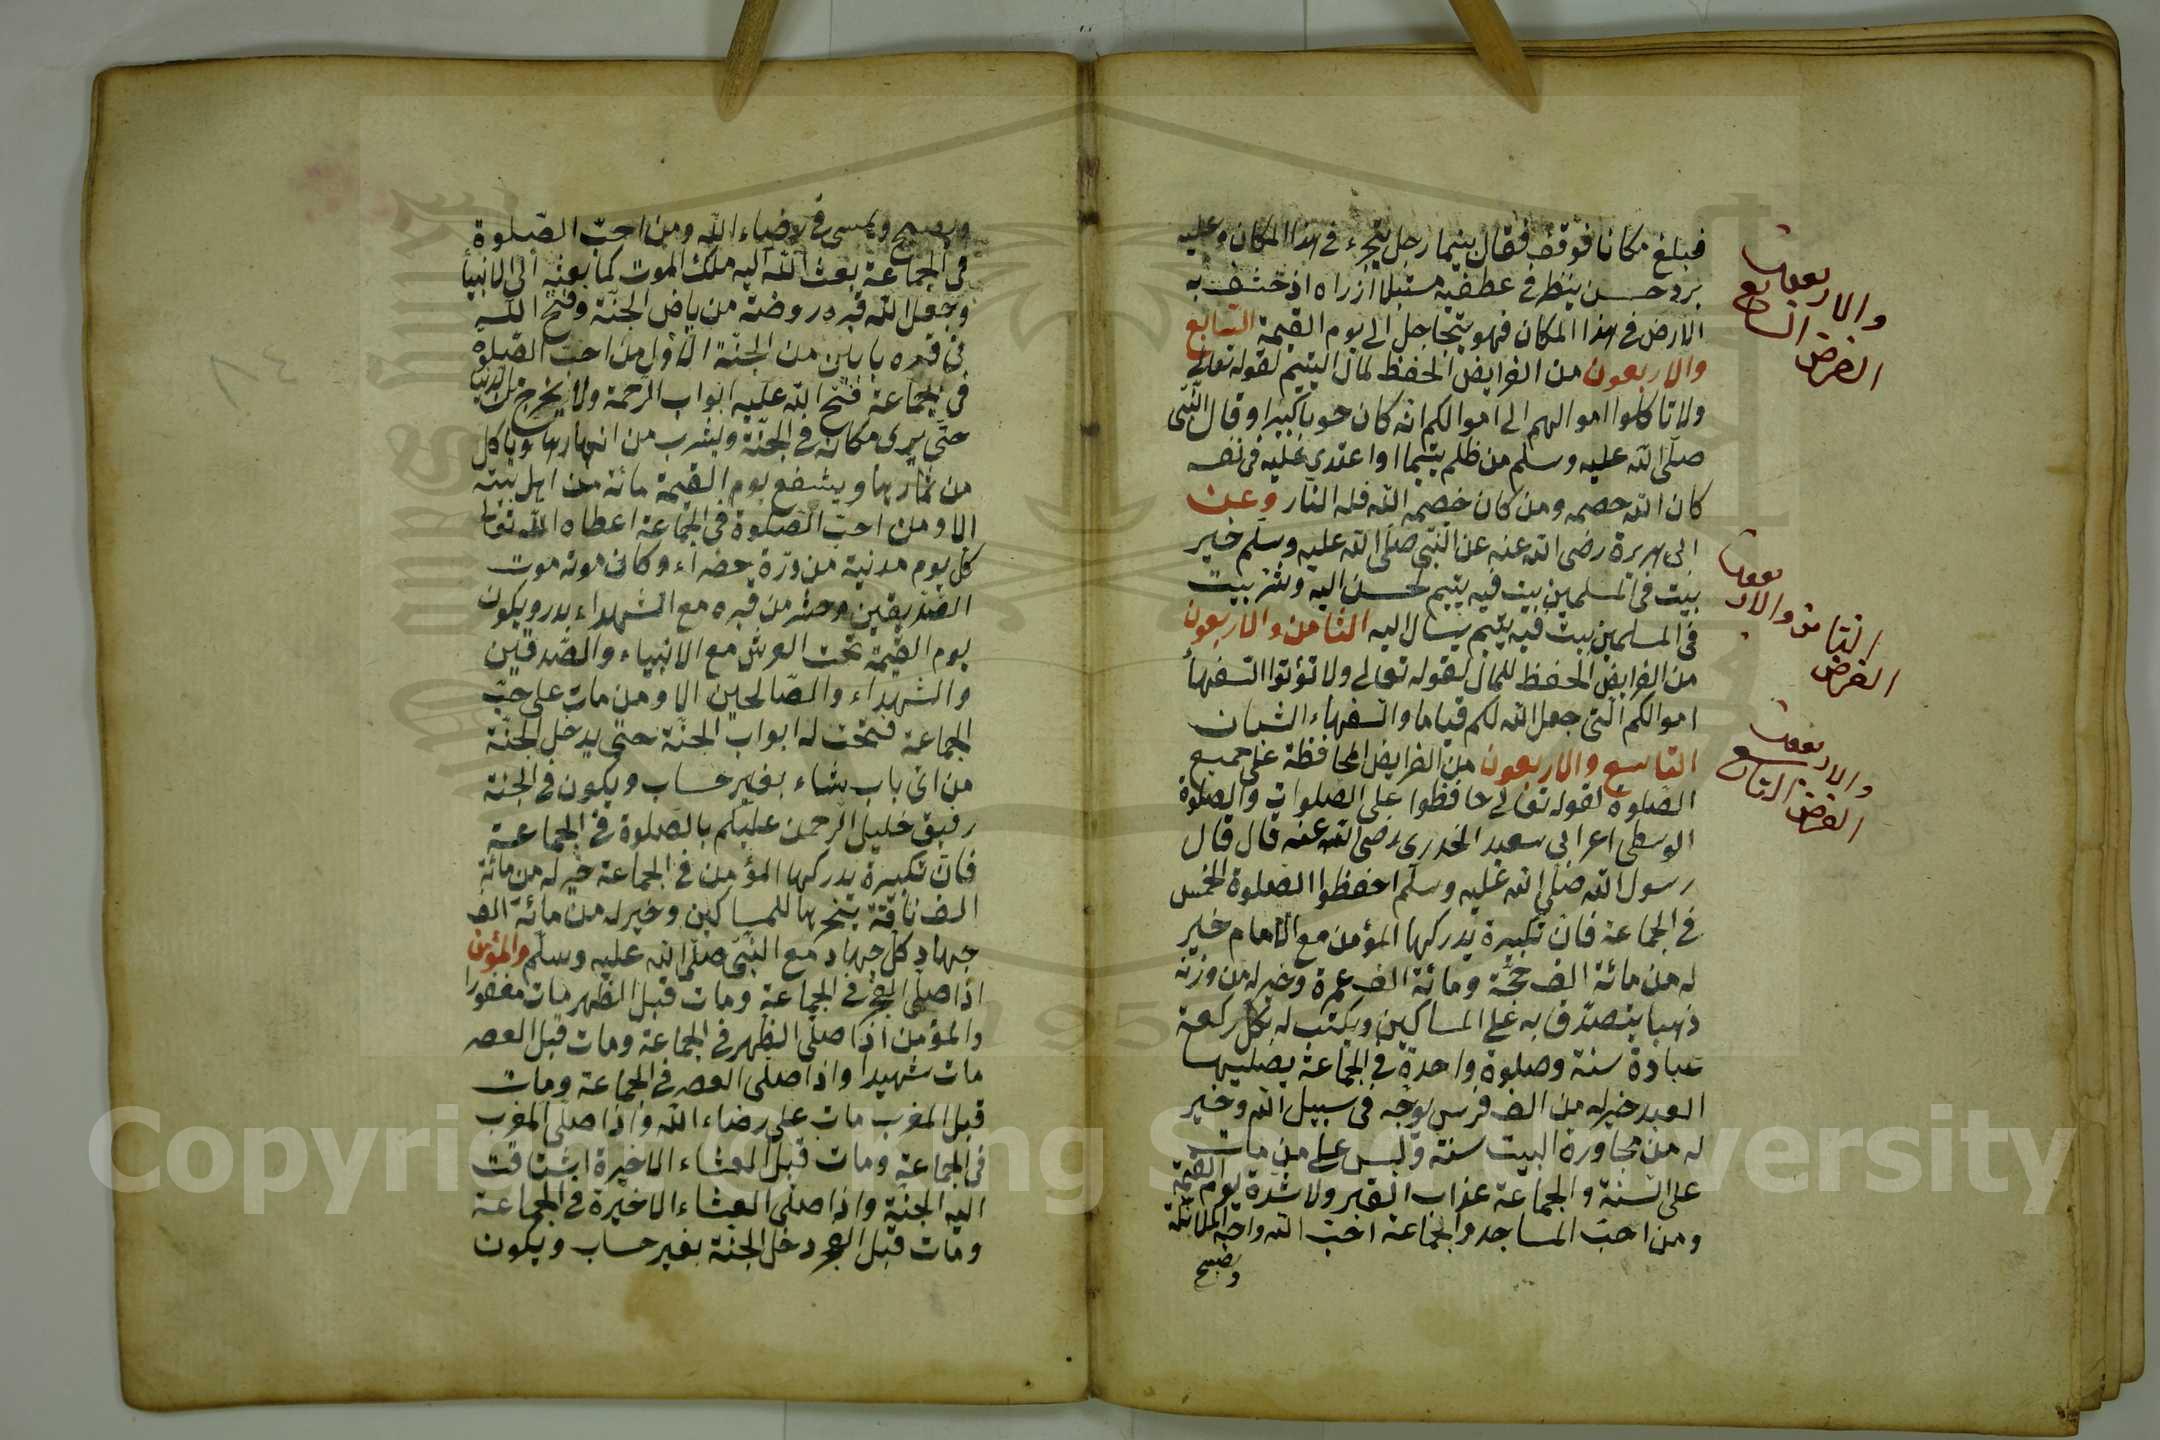 فبلغ مكانا فوقف فقال بينما رجل يتجرء في هذا المكان وعليه
برد حسن ينظر في عطفيه مستبلا ازراه اذ خسف به
الارض في هذا المكان فهو يتجاجل الى يوم القيمة السابع
والاربعون من الفرايض الحفظ لمال اليتيم لقوله تعالى
ولا تاكلوا اموالهم الى اموالكم انه كان حوبا كبيرا وقال النبى
صلى الله عليه وسلم من ظلم يتيما او اعتدى عليه في نفسه
كان الله خصمه ومن كان خصمه الله فله النار وعن
ابى هريرة رضى الله عنه عن النبى صلى الله عليه وسلم خير
بيت في المسلمين بيت فيه يتيم يحسن اليه وشر بيت
في المسلمين بيت فيه يتيم يسال اليه الثامن والاربعون
من الفرايض الحفظ للمال لقوله تعالى ولا تؤتوا السفهأ
اموالكم التى جعل الله لكم قياما والسفهاء الشبان
التاسع والاربعون من الفرايض المحافظة على جميع
الصلوة لقوله تعالى حافظوا على الصلوات والصلوة
الوسطى اعر ابى سعيد الخدرى رضى الله عنه قال قال
رسول الله صلى الله عليه وسلم احفظوا الصلوة الخمس
في الجماعة فان تكبيرة يدركها المؤمن مع الامام خير
له من مائة الف حجة ومائة الف عمرة وخير له من وزنه
ذهبا يتصدق به على المساكين ويكتب له بكل ركعة
عبادة سنة وصلوة واحدة في الجماعة يصليها
العبد خير له من الف فرس يوجه في سبيل الله وخير
له من مجاورة البيت سنة وليس على من مات
على السنة والجماعة عذاب القبر ولا شدة يوم القيمة
ومن احب المساجد والجماعة احب الله واحبه الملائكة
ويصبح
والاربعون
السابع
الفرض
الثامن والاربعون
الفرض
والاربعون
الفرض التاسع
ويصبح ويمسى في رضاء الله ومن احب الصلوة
في الجماعة بعث الله اليه ملك الموت كما بعثه الى الانبيأ
وجعل الله قبره روضة من رياض الجنة وفتح الله
في قبره بابين من الجنة الاول من احب الصلوة
في الجماعة فتح الله عليه ابواب الرحمة ولا يخرج من الدنيا
حتى يرى مكانه في الجنة ويشرب من انهارها وياكل
من ثمارها ويشفع يوم القيمة مائة من اهل بيته
الا ومن احب الصلوة في الجماعة اعطاه الله تعالى
كل يوم مدينة من درة خضراء وكان موته موت
الصديقين وحشر من قبره مع الشهداء بدر ويكون
يوم القيمة تحت العرش مع الانبياء والصدقين
والشهداء والصالحين الا ومن مات على حب
الجماعة فتحت له ابواب الجنة حتى يدخل الجنة
من اى باب يشاء بغير حساب ويكون في الجنة
رفيق خليل الرحمن عليكم بالصلوة في الجماعة
فان تكبيرة يدركها المؤمن في الجماعة خير له من مائة
الف ناقة ينحرها للمساكين وخير له من مائة الف
جهاد كل جهاد مع النبى صلى الله عليه وسلم والمؤمن
اذا صلى الفجر في الجماعة ومات قبل الظهر مات مغفورا
والمؤمن اذا صلى الظهر في الجماعة ومات قبل العصر
مات شهيدا واذا صلى العصر في الجماعة ومات
قبل المغرب مات على رضاء الله واذا صلى المغرب
في الجماعة ومات قبل العشاء الاخيرة اشتاقت
اليه الجنة واذا صلى العشاء الاخيرة في الجماعة
ومات قبل الفجر دخل الجنة بغير حساب ويكون